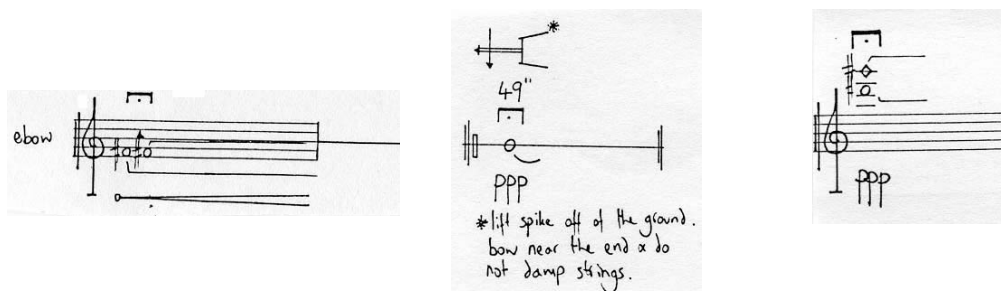 ebow
*
49"
ppp
*lift spike off of the ground.
bow near the end & do
not damp strings.
ppp